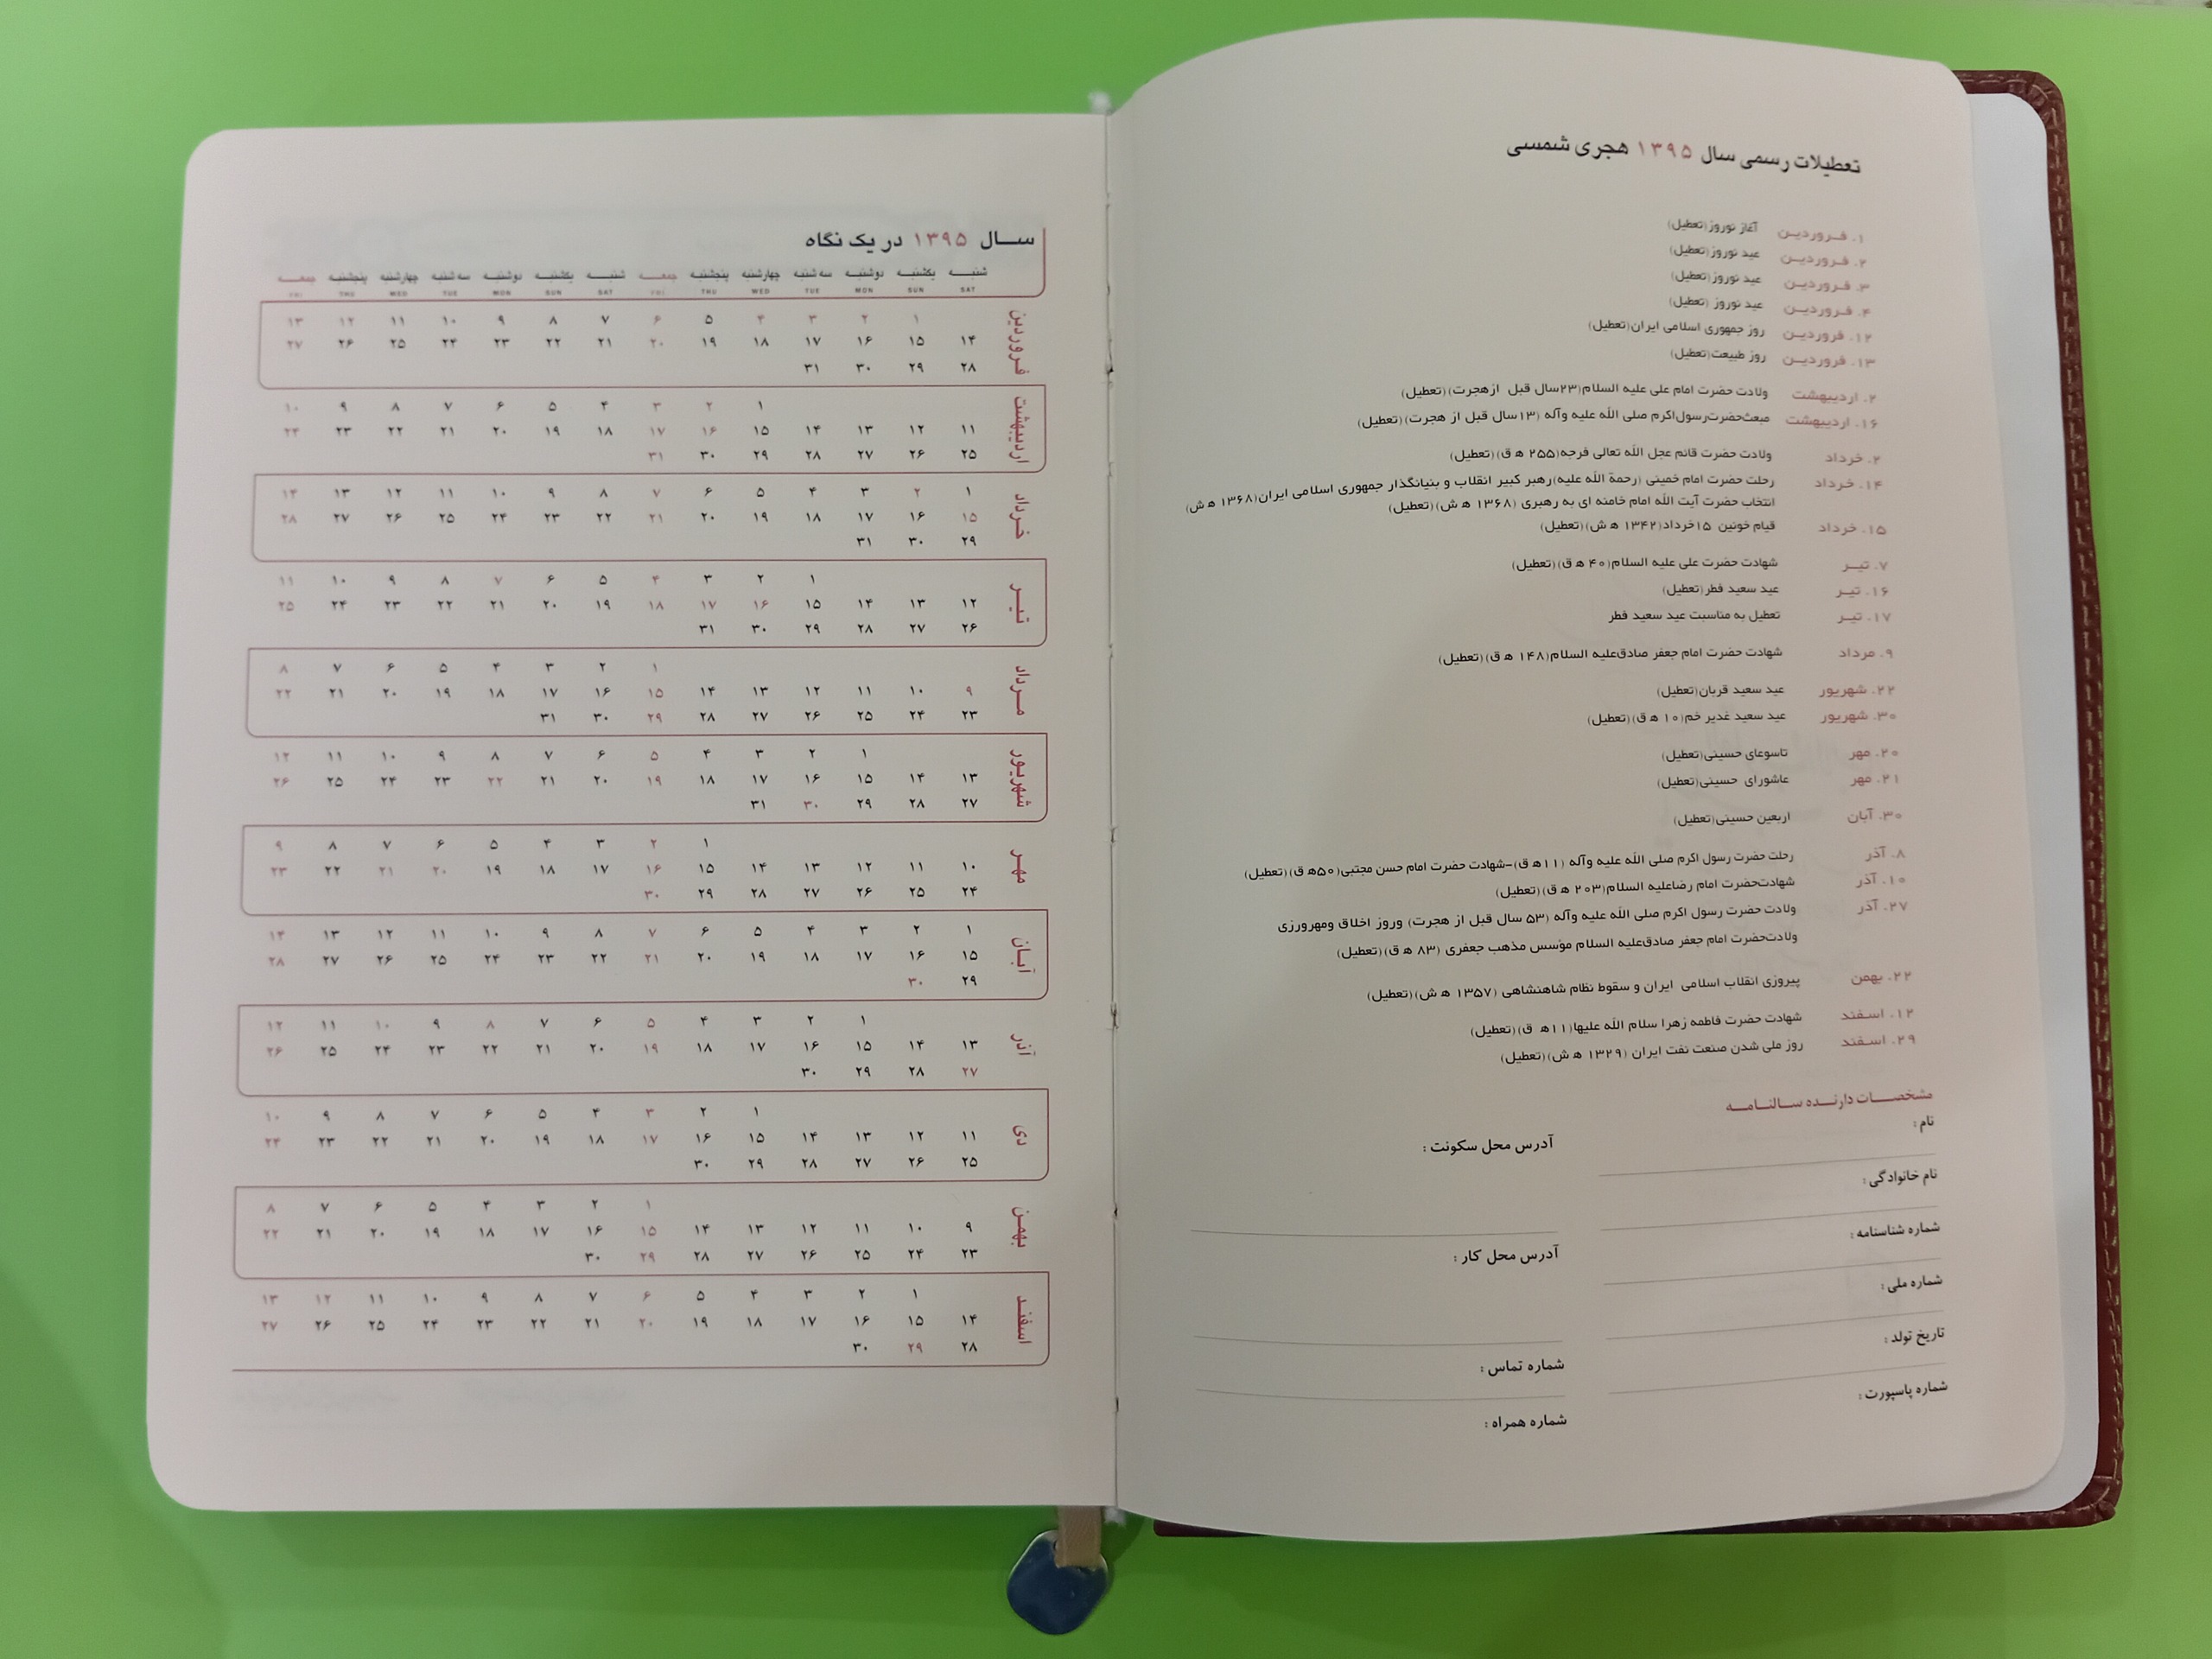 تعطیلات رسمی سال ۱۳۹۵ هجری شمسی
۱. فروردین آغاز نوروز(تعطیل)
۲. فروردین عید نوروز(تعطیل)
۳. فروردین عید نوروز(تعطیل)
۴. فروردین عید نوروز (تعطیل)
۱۲. فروردین روز جمهوری اسلامی ایران(تعطیل)
۱۳. فروردین روز طبیعت(تعطیل)
۲. اردیبهشت ولادت حضرت امام علی علیه السلام(۲۳سال قبل ازهجرت)(تعطیل)
۱۶. اردیبهشت مبعث‌حضرت‌رسول‌اکرم صلی الله علیه وآله (۱۳سال قبل از هجرت)(تعطیل)
۲. خرداد ولادت حضرت قائم عجل الله تعالی فرجه(۲۵۵ ه ق)(تعطیل)
۱۴. خرداد رحلت حضرت امام خمینی (رحمة الله علیه)رهبر کبیر انقلاب و بنیانگذار جمهوری اسلامی ایران(۱۳۶۸ ه ش)
انتخاب حضرت آیت الله امام خامنه ای به رهبری (۱۳۶۸ ه ش)(تعطیل)
۱۵. خرداد قیام خونین ۱۵خرداد(۱۳۴۲ ه ش)(تعطیل)
۷. تیر شهادت حضرت علی علیه السلام(۴۰ ه ق)(تعطیل)
۱۶. تیر عید سعید فطر(تعطیل)
۱۷. تیر تعطیل به مناسبت عید سعید فطر
۹. مرداد شهادت حضرت امام جعفر صادق‌علیه السلام(۱۴۸ ه ق)(تعطیل)
۲۲. شهریور عید سعید قربان(تعطیل)
۳۰. شهریور عید سعید غدیر خم(۱۰ ه ق)(تعطیل)
۲۰. مهر تاسوعای حسینی(تعطیل)
۲۱. مهر عاشورای حسینی(تعطیل)
۳۰. آبان اربعین حسینی(تعطیل)
۸. آذر رحلت حضرت رسول اکرم صلی الله علیه وآله (۱۱ه ق)-شهادت حضرت امام حسن مجتبی(۵۰ه ق)(تعطیل)
۱۰. آذر شهادت‌حضرت امام رضاعلیه السلام(۲۰۳ ه ق)(تعطیل)
۲۷. آذر ولادت حضرت رسول اکرم صلی الله علیه وآله (۵۳ سال قبل از هجرت) وروز اخلاق ومهرورزی
ولادت‌حضرت امام جعفر صادق‌علیه السلام مؤسس مذهب جعفری (۸۳ ه ق)(تعطیل)
۲۲. بهمن پیروزی انقلاب اسلامی ایران و سقوط نظام شاهنشاهی (۱۳۵۷ ه ش)(تعطیل)
۱۲. اسفند شهادت حضرت فاطمه زهرا سلام الله علیها(۱۱ه ق)(تعطیل)
۲۹. اسفند روز ملی شدن صنعت نفت ایران (۱۳۲۹ ه ش)(تعطیل)
مشخصات دارنده سالنامه
نام:
نام خانوادگی:
شماره شناسنامه:
شماره ملی:
تاریخ تولد:
شماره پاسپورت:
آدرس محل سکونت:
آدرس محل کار:
شماره تماس:
شماره همراه:
سال ۱۳۹۵ در یک نگاه
شنبه یکشنبه دوشنبه سه شنبه چهارشنبه پنجشنبه جمعه شنبه یکشنبه دوشنبه سه شنبه چهارشنبه پنجشنبه جمعه
SAT SUN MON TUE WED THU FRI SAT SUN MON TUE WED THU FRI
فروردین
۱ ۲ ۳ ۴ ۵ ۶ ۷ ۸ ۹ ۱۰ ۱۱ ۱۲ ۱۳
۱۴ ۱۵ ۱۶ ۱۷ ۱۸ ۱۹ ۲۰ ۲۱ ۲۲ ۲۳ ۲۴ ۲۵ ۲۶ ۲۷
۲۸ ۲۹ ۳۰ ۳۱
اردیبهشت
۱ ۲ ۳ ۴ ۵ ۶ ۷ ۸ ۹ ۱۰
۱۱ ۱۲ ۱۳ ۱۴ ۱۵ ۱۶ ۱۷ ۱۸ ۱۹ ۲۰ ۲۱ ۲۲ ۲۳ ۲۴
۲۵ ۲۶ ۲۷ ۲۸ ۲۹ ۳۰ ۳۱
خرداد
۱ ۲ ۳ ۴ ۵ ۶ ۷ ۸ ۹ ۱۰ ۱۱ ۱۲ ۱۳ ۱۴
۱۵ ۱۶ ۱۷ ۱۸ ۱۹ ۲۰ ۲۱ ۲۲ ۲۳ ۲۴ ۲۵ ۲۶ ۲۷ ۲۸
۲۹ ۳۰ ۳۱
تیر
۱ ۲ ۳ ۴ ۵ ۶ ۷ ۸ ۹ ۱۰ ۱۱
۱۲ ۱۳ ۱۴ ۱۵ ۱۶ ۱۷ ۱۸ ۱۹ ۲۰ ۲۱ ۲۲ ۲۳ ۲۴ ۲۵
۲۶ ۲۷ ۲۸ ۲۹ ۳۰ ۳۱
مرداد
۱ ۲ ۳ ۴ ۵ ۶ ۷ ۸
۹ ۱۰ ۱۱ ۱۲ ۱۳ ۱۴ ۱۵ ۱۶ ۱۷ ۱۸ ۱۹ ۲۰ ۲۱ ۲۲
۲۳ ۲۴ ۲۵ ۲۶ ۲۷ ۲۸ ۲۹ ۳۰ ۳۱
شهریور
۱ ۲ ۳ ۴ ۵ ۶ ۷ ۸ ۹ ۱۰ ۱۱ ۱۲
۱۳ ۱۴ ۱۵ ۱۶ ۱۷ ۱۸ ۱۹ ۲۰ ۲۱ ۲۲ ۲۳ ۲۴ ۲۵ ۲۶
۲۷ ۲۸ ۲۹ ۳۰ ۳۱
مهر
۱ ۲ ۳ ۴ ۵ ۶ ۷ ۸ ۹
۱۰ ۱۱ ۱۲ ۱۳ ۱۴ ۱۵ ۱۶ ۱۷ ۱۸ ۱۹ ۲۰ ۲۱ ۲۲ ۲۳
۲۴ ۲۵ ۲۶ ۲۷ ۲۸ ۲۹ ۳۰
آبان
۱ ۲ ۳ ۴ ۵ ۶ ۷ ۸ ۹ ۱۰ ۱۱ ۱۲ ۱۳ ۱۴
۱۵ ۱۶ ۱۷ ۱۸ ۱۹ ۲۰ ۲۱ ۲۲ ۲۳ ۲۴ ۲۵ ۲۶ ۲۷ ۲۸
۲۹ ۳۰
آذر
۱ ۲ ۳ ۴ ۵ ۶ ۷ ۸ ۹ ۱۰ ۱۱ ۱۲
۱۳ ۱۴ ۱۵ ۱۶ ۱۷ ۱۸ ۱۹ ۲۰ ۲۱ ۲۲ ۲۳ ۲۴ ۲۵ ۲۶
۲۷ ۲۸ ۲۹ ۳۰
دی
۱ ۲ ۳ ۴ ۵ ۶ ۷ ۸ ۹ ۱۰
۱۱ ۱۲ ۱۳ ۱۴ ۱۵ ۱۶ ۱۷ ۱۸ ۱۹ ۲۰ ۲۱ ۲۲ ۲۳ ۲۴
۲۵ ۲۶ ۲۷ ۲۸ ۲۹ ۳۰
بهمن
۱ ۲ ۳ ۴ ۵ ۶ ۷ ۸
۹ ۱۰ ۱۱ ۱۲ ۱۳ ۱۴ ۱۵ ۱۶ ۱۷ ۱۸ ۱۹ ۲۰ ۲۱ ۲۲
۲۳ ۲۴ ۲۵ ۲۶ ۲۷ ۲۸ ۲۹ ۳۰
اسفند
۱ ۲ ۳ ۴ ۵ ۶ ۷ ۸ ۹ ۱۰ ۱۱ ۱۲ ۱۳
۱۴ ۱۵ ۱۶ ۱۷ ۱۸ ۱۹ ۲۰ ۲۱ ۲۲ ۲۳ ۲۴ ۲۵ ۲۶ ۲۷
۲۸ ۲۹ ۳۰